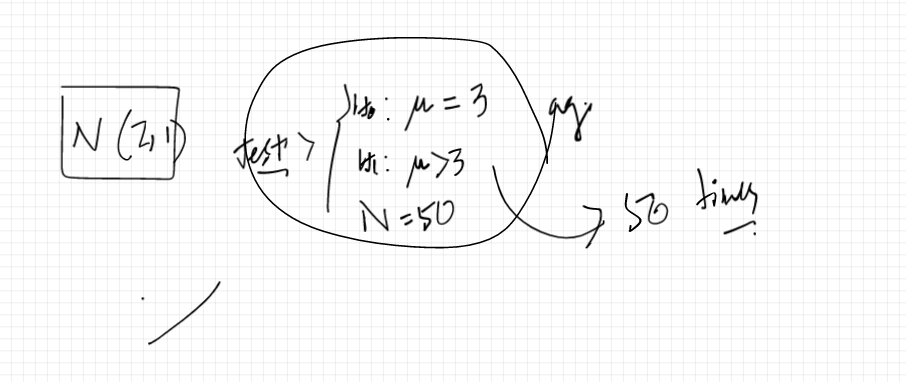 N(2,1)
test > H0: μ = 3
H1: μ>3
N=50
50 times